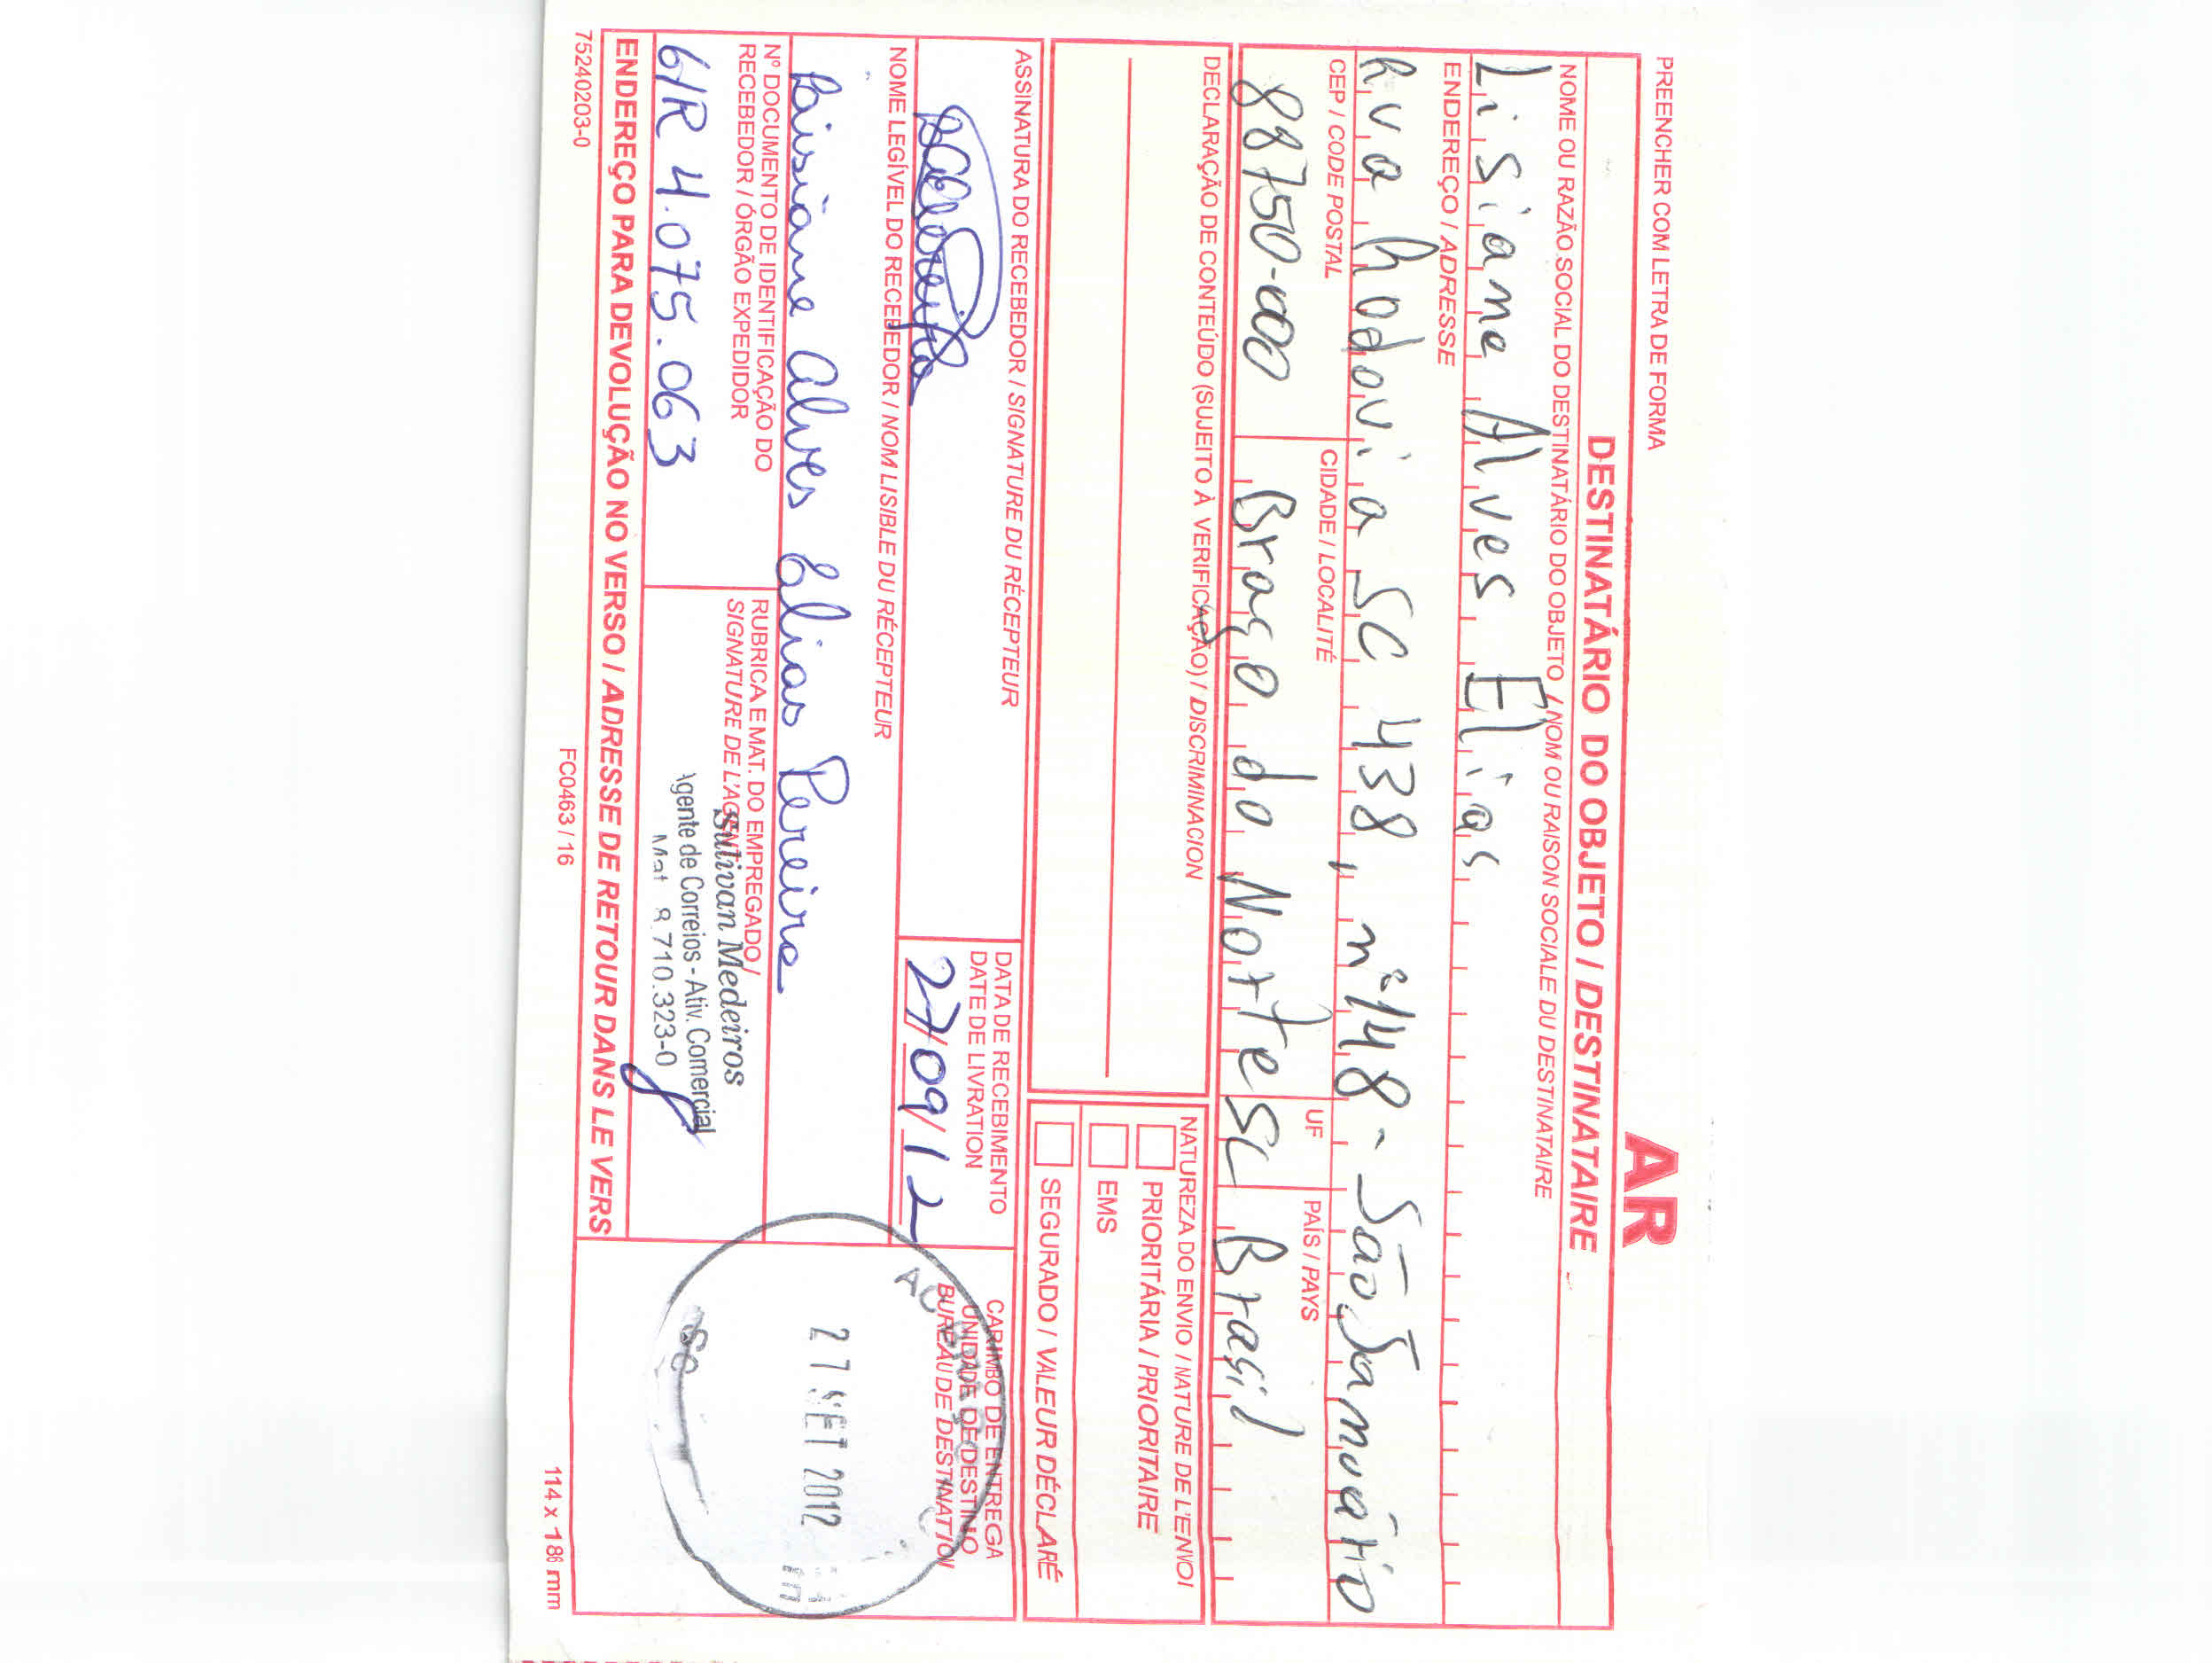 PREENCHER COM LETRA DE FORMA
AR
DESTINATÁRIO DO OBJETO / DESTINATAIRE
NOME OU RAZÃO SOCIAL DO DESTINATÁRIO DO OBJETO / NOM OU RAISON SOCIALE DU DESTINATAIRE
Lisiane Alves Elias
ENDEREÇO / ADRESSE
Rua Rodovia SC 438, nº 148 - São Januário
CEP / CODE POSTAL
CIDADE / LOCALITÉ
UF
PAÍS / PAYS
88750-000 Braço do Norte SC Brasil
DECLARAÇÃO DE CONTEÚDO (SUJEITO À VERIFICAÇÃO) / DISCRIMINACION
NATUREZA DO ENVIO / NATURE DE L'ENVOI
PRIORITÁRIA / PRIORITAIRE
EMS
SEGURADO / VALEUR DÉCLARÉ
ASSINATURA DO RECEBEDOR / SIGNATURE DU RÉCEPTEUR
DATA DE RECEBIMENTO
DATE DE LIVRATION
27/09/12
CARIMBO DE ENTREGA
UNIDADE DE DESTINO
BUREAU DE DESTINATION
AC BRAÇO
27 SET 2012
SC
NOME LEGÍVEL DO RECEBEDOR / NOM LISIBLE DU RÉCEPTEUR
Lisiane Alves Elias Pereira
Nº DOCUMENTO DE IDENTIFICAÇÃO DO
RECEBEDOR / ÓRGÃO EXPEDIDOR
6/R 4.075.063
RUBRICA E MAT. DO EMPREGADO /
SIGNATURE DE L'AGENT
Sulivan Medeiros
Agente de Correios - Ativ. Comercial
Mat 8.710.323-0
ENDEREÇO PARA DEVOLUÇÃO NO VERSO / ADRESSE DE RETOUR DANS LE VERS
75240203-0
FC0463 / 16
114 x 186 mm